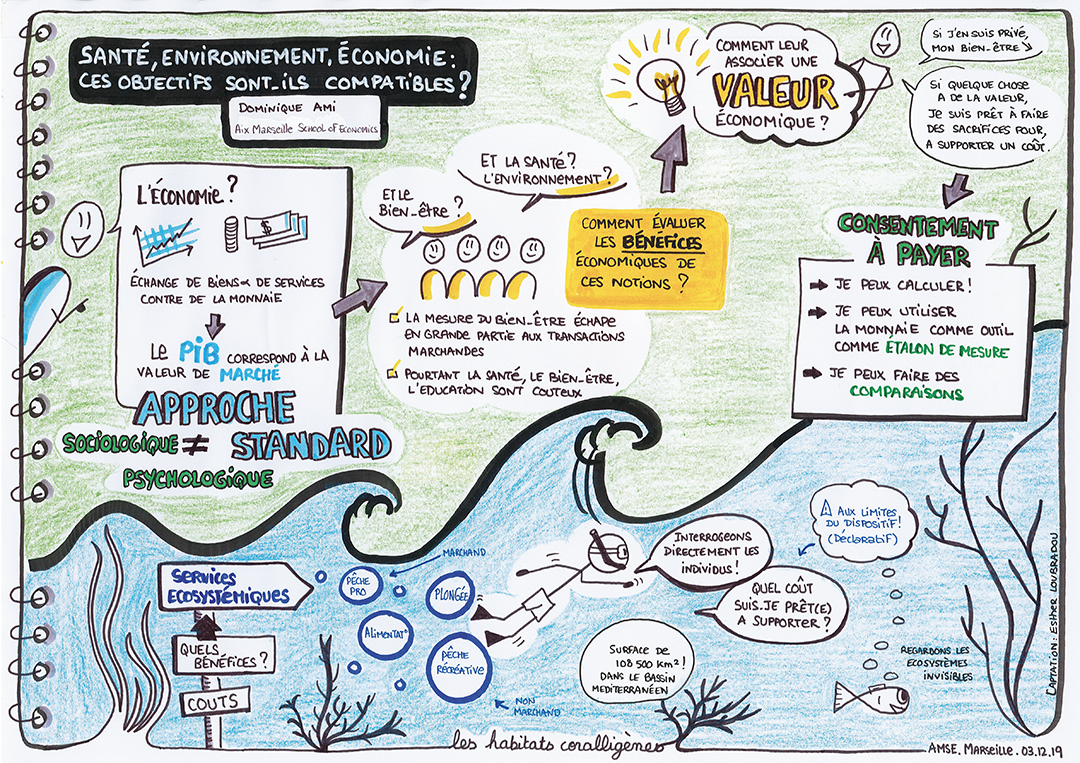 SANTÉ, ENVIRONNEMENT, ÉCONOMIE :
CES OBJECTIFS SONT-ILS COMPATIBLES ?
DOMINIQUE AMI
AIX MARSEILLE SCHOOL OF ECONOMICS
L'ÉCONOMIE ?
$
ÉCHANGE DE BIENS & DE SERVICES
CONTRE DE LA MONNAIE
LE PIB CORRESPOND À LA
VALEUR DE MARCHÉ
APPROCHE
SOCIOLOGIQUE ≠ STANDARD
PSYCHOLOGIQUE
ET LE
BIEN-ÊTRE ?
ET LA SANTÉ ?
L'ENVIRONNEMENT ?
LA MESURE DU BIEN-ÊTRE ÉCHAPE
EN GRANDE PARTIE AUX TRANSACTIONS
MARCHANDES
POURTANT LA SANTÉ, LE BIEN-ÊTRE,
L'EDUCATION SONT COUTEUX
COMMENT ÉVALUER
LES BÉNÉFICES
ÉCONOMIQUES DE
CES NOTIONS ?
COMMENT LEUR
ASSOCIER UNE
VALEUR
ÉCONOMIQUE ?
SI J'EN SUIS PRIVÉ,
MON BIEN-ÊTRE ↘
SI QUELQUE CHOSE
A DE LA VALEUR,
JE SUIS PRÊT À FAIRE
DES SACRIFICES POUR,
A SUPPORTER UN COÛT.
CONSENTEMENT
À PAYER
→ JE PEUX CALCULER !
→ JE PEUX UTILISER
LA MONNAIE COMME OUTIL
COMME ÉTALON DE MESURE
→ JE PEUX FAIRE DES
COMPARAISONS
SERVICES
ECOSYSTÉMIQUES
QUELS
BÉNÉFICES ?
COUTS
MARCHAND
PÊCHE
PRO
PLONGÉE
ALIMENTAT°
PÊCHE
RÉCRÉATIVE
NON
MARCHAND
INTERROGEONS
DIRECTEMENT LES
INDIVIDUS !
QUEL COÛT
SUIS-JE PRÊT(E)
A SUPPORTER ?
⚠ AUX LIMITES
DU DISPOSITIF !
(DÉCLARATIF)
SURFACE DE
108 500 KM² !
DANS LE BASSIN
MEDITERRANÉEN
REGARDONS LES
ECOSYSTÈMES
INVISIBLES
les habitats coralligènes
CAPTATION : ESTHER LOUBRADOU
AMSE. MARSEILLE. 03.12.19